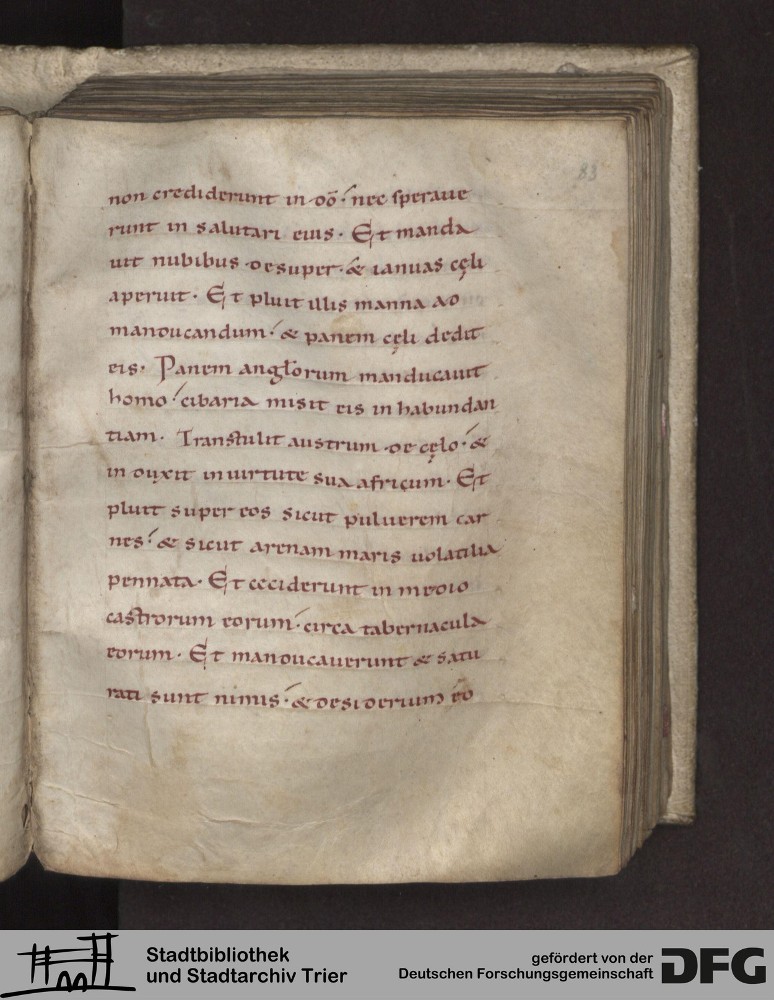 83
non crediderunt in dō. nec speraue
runt in salutari eius. Et manda
uit nubibus desuper. & ianuas cęli
aperuit. Et pluit illis manna ad
manducandum. & panem cęli dedit
eis. Panem angłorum manducauit
homo. cibaria misit eis in habundan
tiam. Transtulit austrum de cęlo. &
induxit in uirtute sua africum. Et
pluit super eos sicut puluerem car
nes. & sicut arenam maris uolatilia
pennata. Et ceciderunt in medio
castrorum eorum. circa tabernacula
eorum. Et manducauerunt & satu
rati sunt nimis. & desiderium eo
Stadtbibliothek
und Stadtarchiv Trier
gefördert von der
Deutschen Forschungsgemeinschaft
DFG